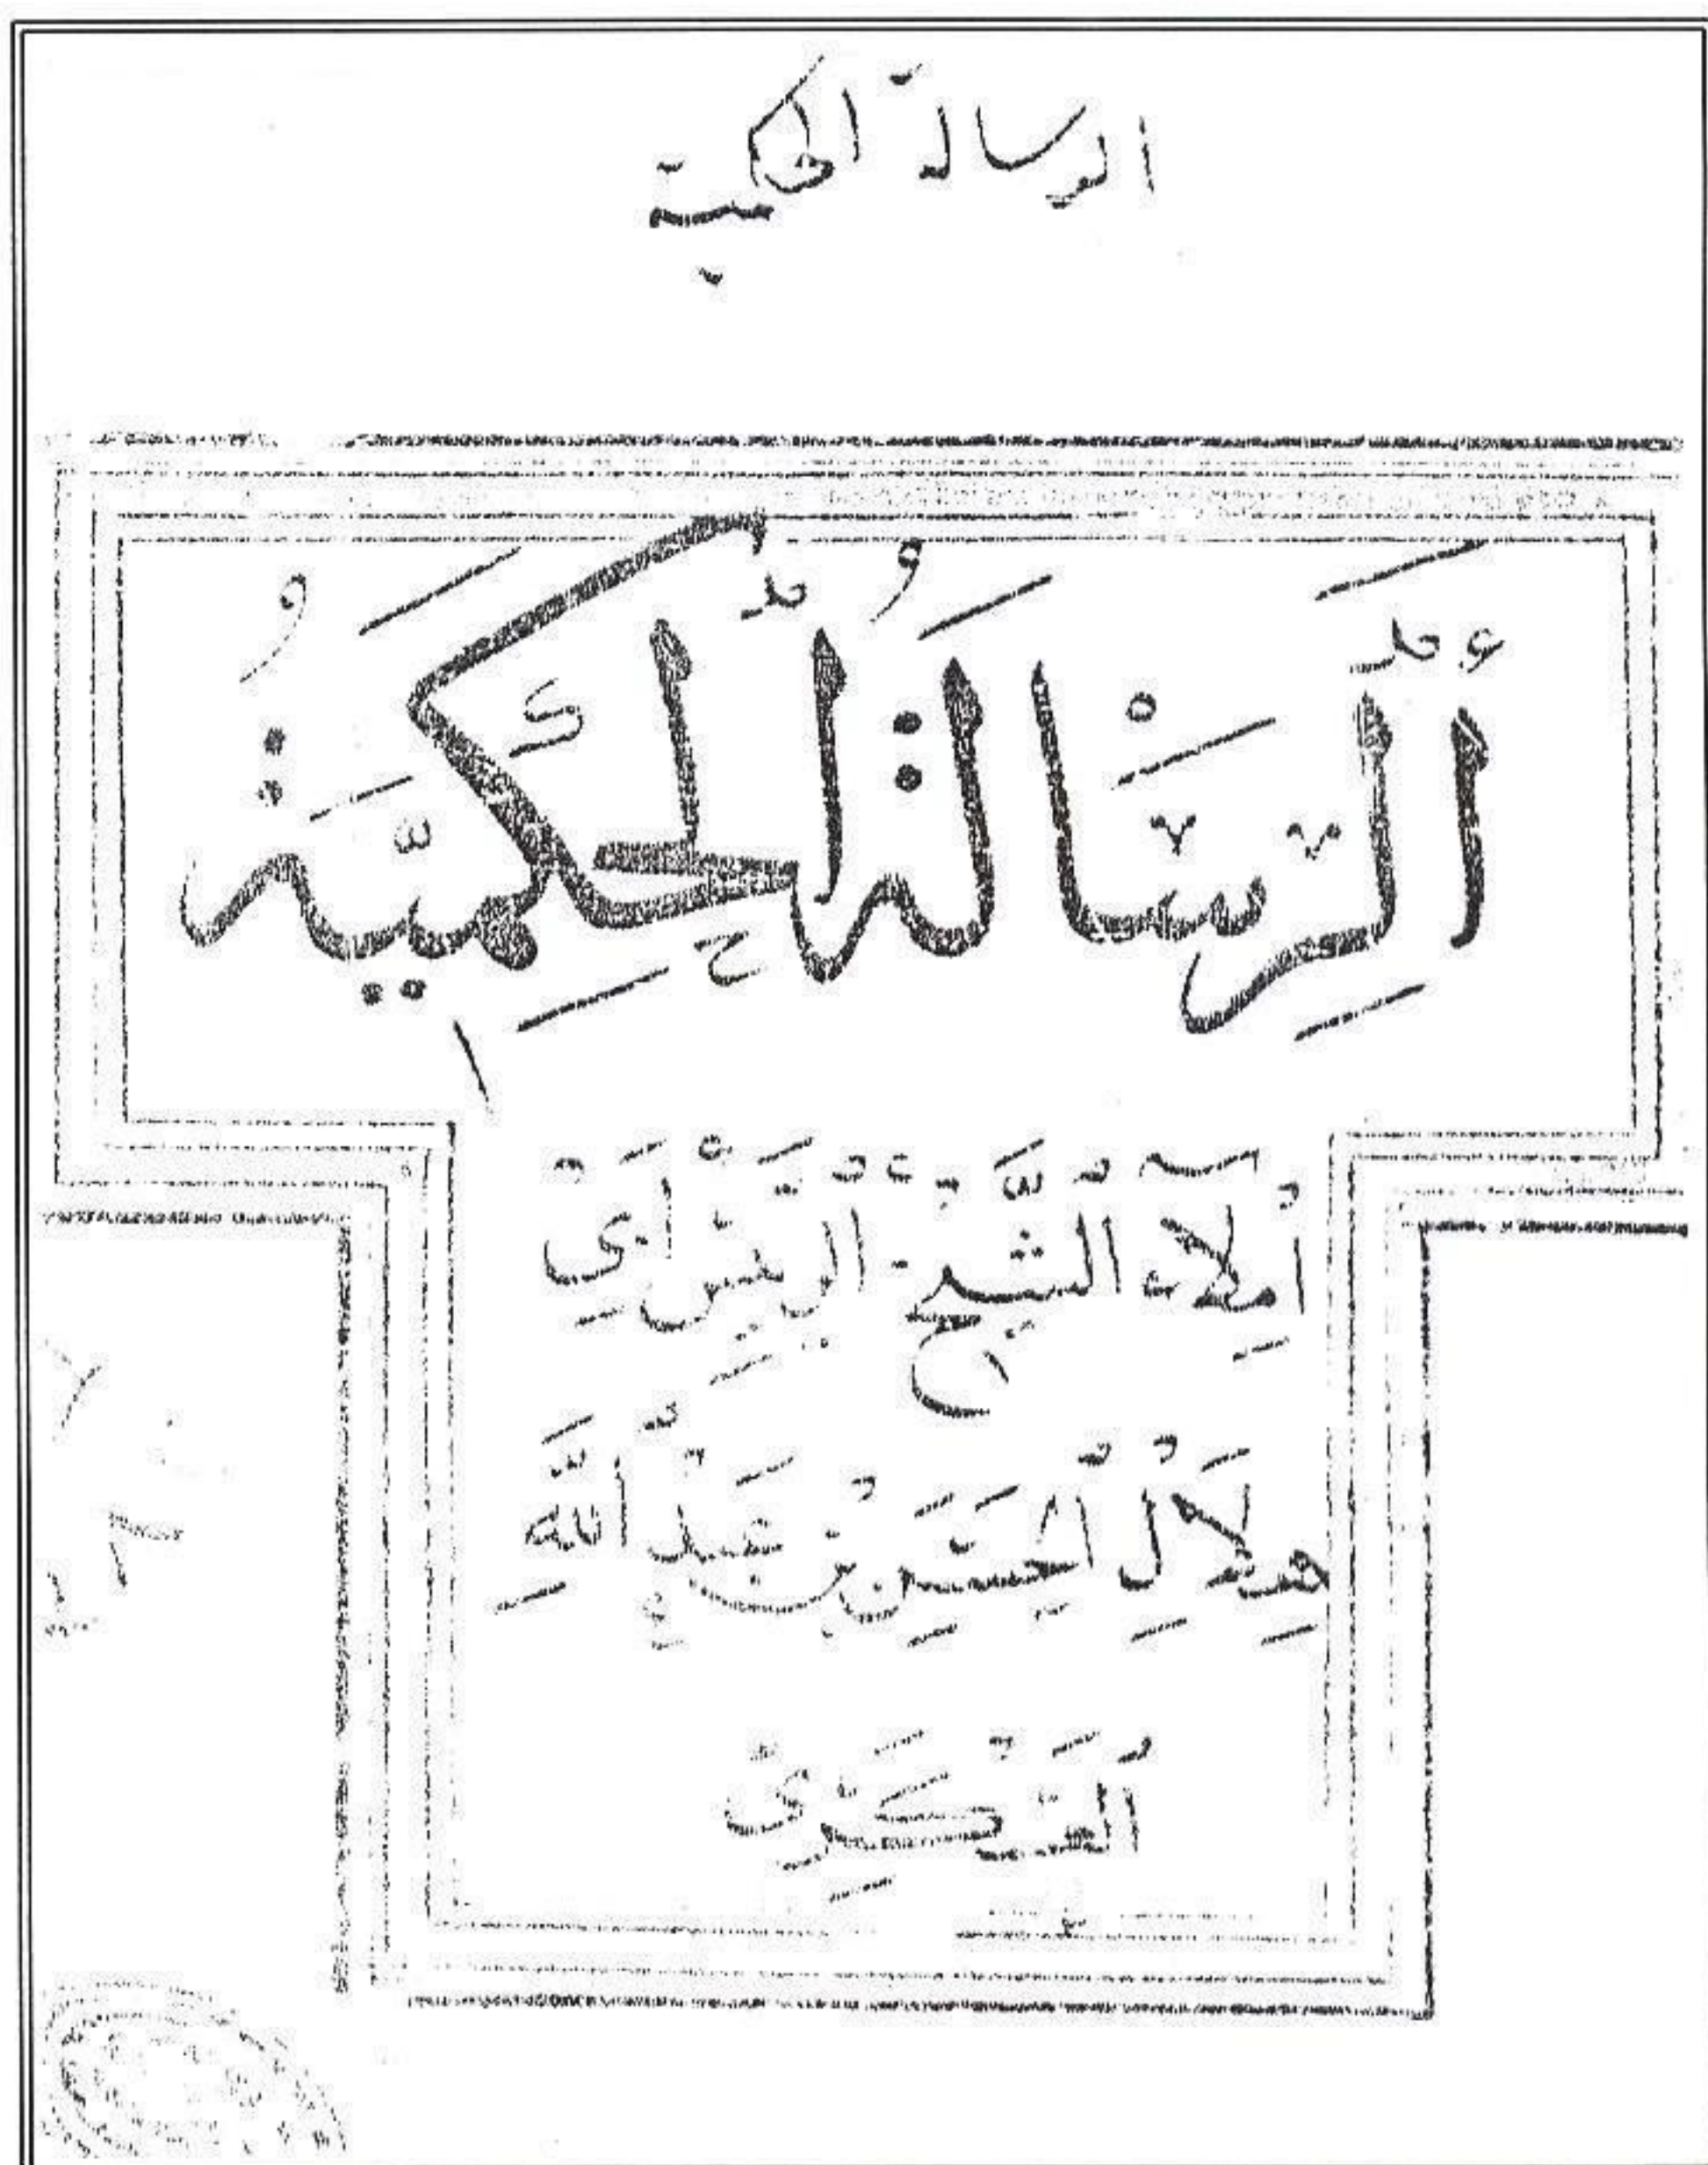 الرسالة الحكمية
أَلرِّسَالَةُ الحِكَمِيَّةُ
أَمِلَآء الشَّيْخ الرئيسِ أَبِي
هِلَالِ الْحَسَنِ بن عَبدِ اللَّهِ
الْعَسْكَرِىّ